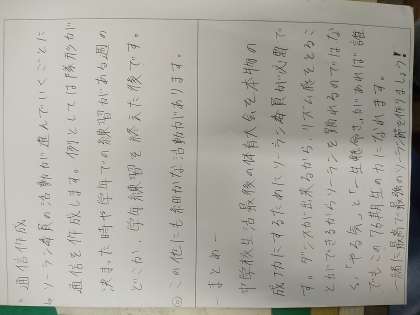 ○ 通信作成
↳ ソーラン委員の活動が進んでいくごとに
通信を作成します。例としては隊形が
決まった時や学年での練習がある週の
どこか、学年練習を終えた後です。
◎ この他にも細かな活動があります。
- まとめ -
中学校生活最後の体育大会を本物の
成功にするためにソーラン委員が必要で
す。ダンスが出来るから、リズム感をとるこ
とができるからソーランを踊れるのではな
く、「やる気」と「一生懸命さ」があれば誰
でもこの76期生の力になれます。
一緒に最高で最強のソーラン節を作りましょう!